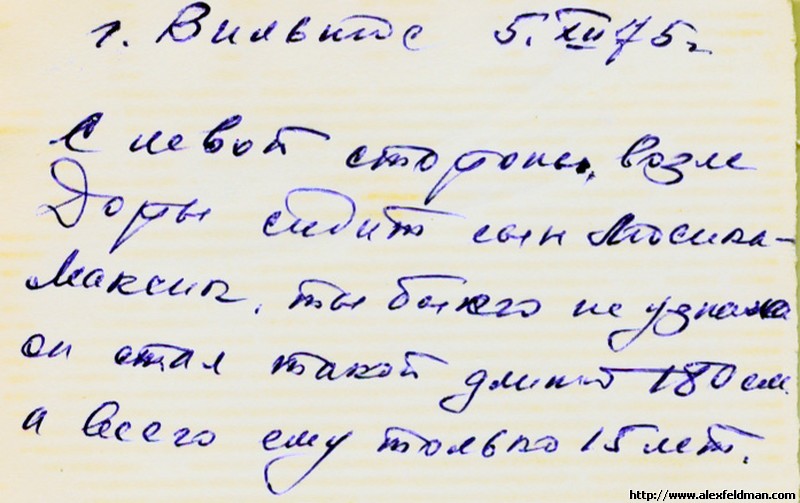 г. Вильнюс 5. XII 75 г
С левой стороны, возле
Доры сидит сын Люсика-
Максим, ты бы его не узнала
он стал такой длинный 180 см.
а всего ему только 15 лет.
http://www.alexfeldman.com